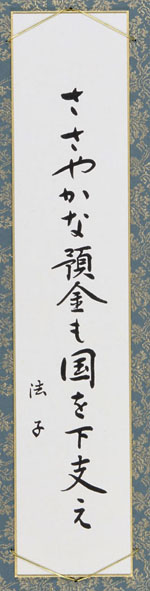 ささやかな預金も国を下支え
法子